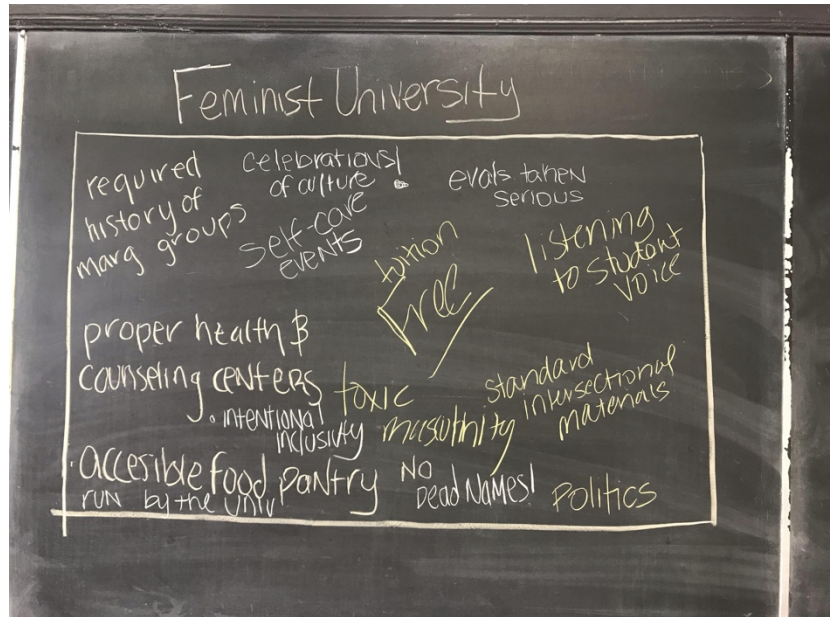 Feminist University
required
history of
marg groups
celebrations/
of culture
self-care
events
evals taken
serious
tuition
Free
listening
to student
voice
proper health &
counseling centers
• intentional
inclusivity
toxic
masulinity
standard
intersectional
materials
accesible food pantry
run by the univ
No
Dead Names!
Politics